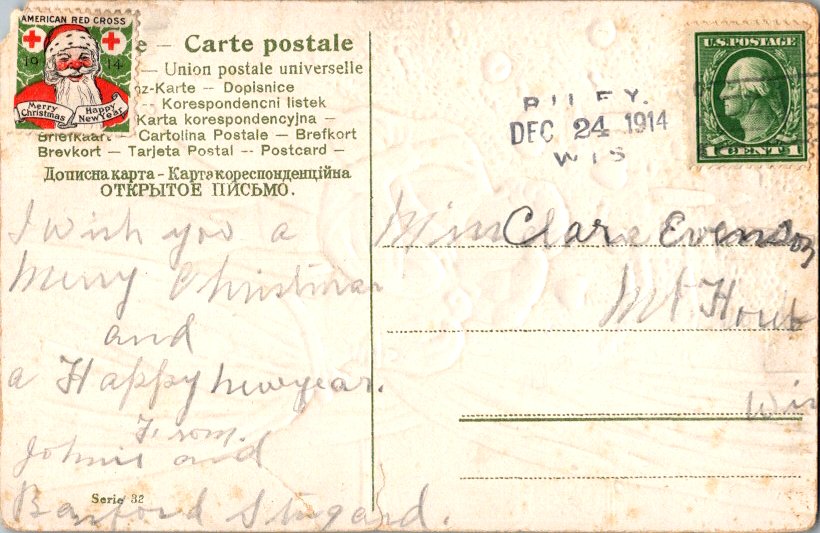 AMERICAN RED CROSS
19 14
Merry Christmas
Happy New Year
e – Carte postale
– Union postale universelle
nz-Karte – Dopisnice
-- Korespondencni listek
Karta korespondencyjna –
Briefkaart – Cartolina Postale – Brefkort
Brevkort – Tarjeta Postal -- Postcard –
Дописна карта – Карта кореспонденційна
ОТКРЫТОЕ ПИСЬМО.
I Wish you a
Merry Christmas
and
a Happy newyear.
From.
Johnie and
Serie 32
RILEY.
DEC 24 1914
WIS
U.S. POSTAGE
1 CENT 1
Miss Clara Evenson
Mt Horeb
Wis